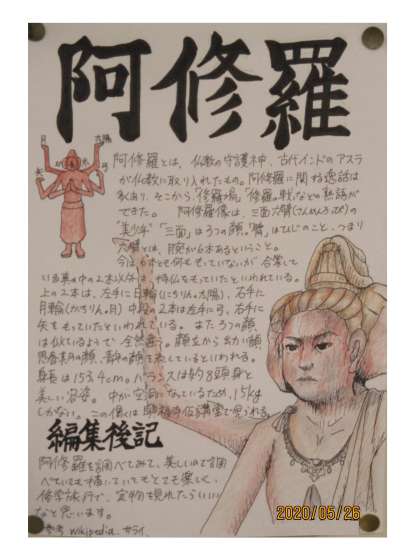 阿修羅
月 太陽
矢 弓
阿修羅とは、仏教の守護神、古代インドのアスラ
が仏教に取り入れたもの。阿修羅に関する逸話は
多くあり、そこから「修羅場」「修羅の戦」などの熟語が
できた。 阿修羅像は、三面六臂(さんめんろっぴ)の
「美少年」「三面」は3つの顔。「臂」はひじのこと、つまり
六臂とは、腕が6本あるということ。
今は6本とも何ももっていないが、合掌して
いる真ん中の2本以外は、持仏をもっていたといわれている。
上の2本は、左手に日輪(にちりん。太陽)、右手に
月輪(がちりん。月) 中段の2本は左手に弓、右手に
矢をもっていたといわれている。 また3つの顔
は似ているようで全然違う。
身長は153.4cm。バランスは約8頭身と
美しい容姿。 中が空になっているため、15kg
しかない。この像は で見られる。
編集後記
阿修羅を調べてみて、美しいので調
べていても描いていてもとても楽しく、
修学旅行で、実物を見れたらいい
なと思います。
参考 wikipedia. サライ.
2020/05/26